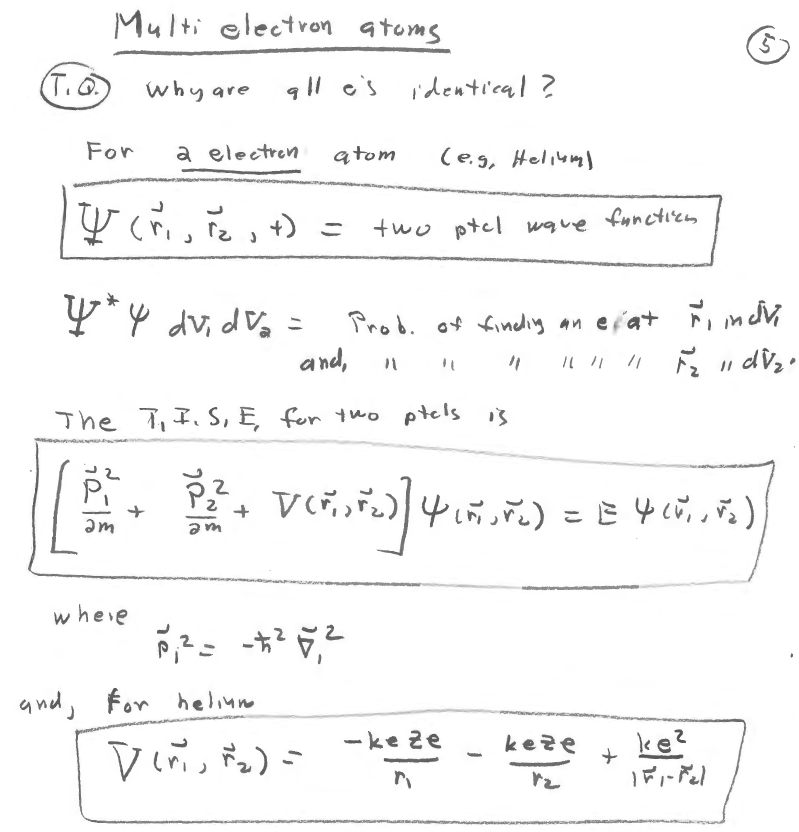 Multi electron atoms
⑤
T.Q. why are all e's identical?
For 2 electron atom (e.g. Helium)
Ψ(r⃗₁, r⃗₂, t) = two ptcl wave function
Ψ*Ψ dV₁ dV₂ = Prob. of finding an e at r⃗₁ in dV₁
and, " " " " " " r⃗₂ " dV₂.
The T.I.S.E. for two ptcls is
[p⃗₁²/2m + p⃗₂²/2m + V(r⃗₁, r⃗₂)] Ψ(r⃗₁, r⃗₂) = E Ψ(r⃗₁, r⃗₂)
where
p⃗₁² = -ħ² ∇⃗₁²
and, for helium
V(r⃗₁, r⃗₂) = -keze/r₁ - keze/r₂ + ke²/|r⃗₁-r⃗₂|